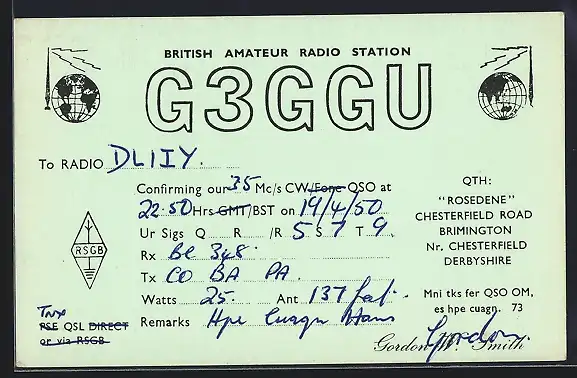 BRITISH AMATEUR RADIO STATION
G3GGU
To RADIO DL1IY.
Confirming our 35 Mc/s CW/Fone QSO at
22.50 Hrs GMT/BST on 19/4/50
Ur Sigs Q R /R 5 S 7 T 9.
Rx BC 348.
Tx CO BA PA.
Watts 25. Ant 137 feet.
Remarks Hpe Cuagn Hans
RSGB
Tnx
PSE QSL DIRECT
or via RSGB
QTH:
"ROSEDENE"
CHESTERFIELD ROAD
BRIMINGTON
Nr. CHESTERFIELD
DERBYSHIRE
Mni tks fer QSO OM,
es hpe cuagn. 73
Gordon
Gordon W. Smith